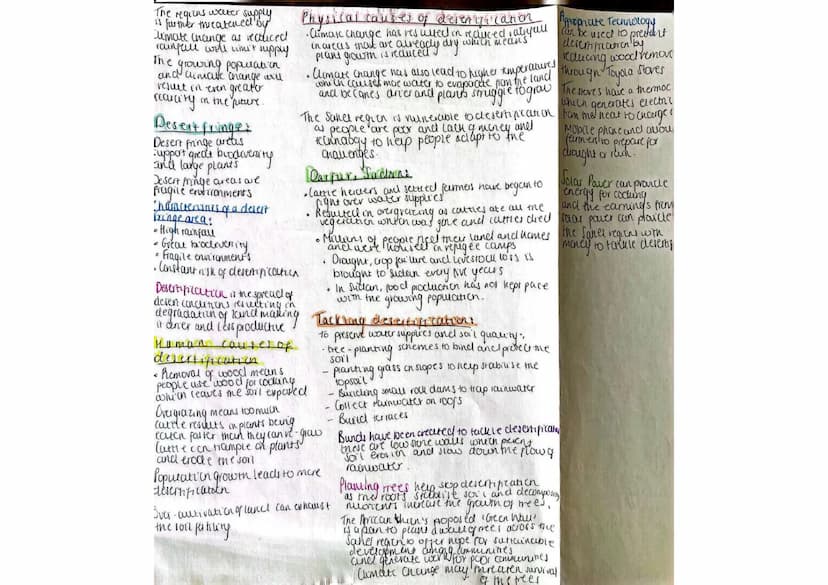 The regions water supply
is further threatened by
climate change as reduced
rainfall will limit supply
The growing population
and climate change will
result in even greater
scarcity in the future.
Desert fringe:
Desert fringe areas
support great biodiversity
and large plants
Desert fringe areas are
fragile environments
Characteristics of a desert
fringe area:
• High rainfall
• Great biodiversity
• Fragile environments
• Constant risk of desertification
Desertification is the spread of
desert conditions resulting in
degradation of land making
it drier and less productive
Human causes of
desertification
• Removal of wood means
people use wood for cooking
which leaves the soil exposed
Overgrazing means too much
cattle results in plants being
eaten faster than they can re-grow
Cattle can trample on plants
and erode the soil
Population growth leads to more
desertification
Over-cultivation of land can exhaust
the soil fertility
Physical causes of desertification
• Climate change has resulted in reduced rainfall
in areas that are already dry which means
plant growth is reduced
• Climate change has also lead to higher temperatures
which causes more water to evaporate from the land
and becomes drier and plants struggle to grow
The Sahel region is vulnerable to desertification
as people are poor and lack of money and
technology to help people adapt to the
challenges.
Darfur, Sudan:
• Cattle herders and settled farmers have begun to
fight over water supplies
• Resulted in overgrazing as cattles ate all the
vegetation which was gone and cattles died
• Millions of people fled their land and homes
and were housed in refugee camps
• Drought, crop failure and livestock loss is
brought to Sudan every five years
• In Sudan, food production has not kept pace
with the growing population.
Tackling desertification:
To preserve water supplies and soil quality:
- tree-planting schemes to bind and protect the
soil
- planting grass on slopes to help stabilise the
topsoil
- Building small rock dams to trap rainwater
- Collect rainwater on roofs
- Build terraces
Bunds have been created to tackle desertification
these are low stone walls which prevent
soil erosion and slow down the flow of
rainwater.
Planting trees help stop desertification
as the roots stabilise soil and decomposing
nutrients increase the growth of trees.
The African Union's proposed 'Green Wall'
is a plan to plant a wall of trees across the
Sahel region to offer hope for sustainable
development among communities
and generate work for poor communities
Climate change may threaten survival
of the trees
Appropriate Technology
can be used to prevent
desertification by
reducing wood remov
through Toyola Stoves
The stoves have a thermoc
which generates electric
from the heat to charge
mobile phone and allow
farmers to prepare for
drought or rain.
Solar Power can provide
energy for cooking
and the earnings from
solar power can provide
the Sahel regions with
money to tackle deserti